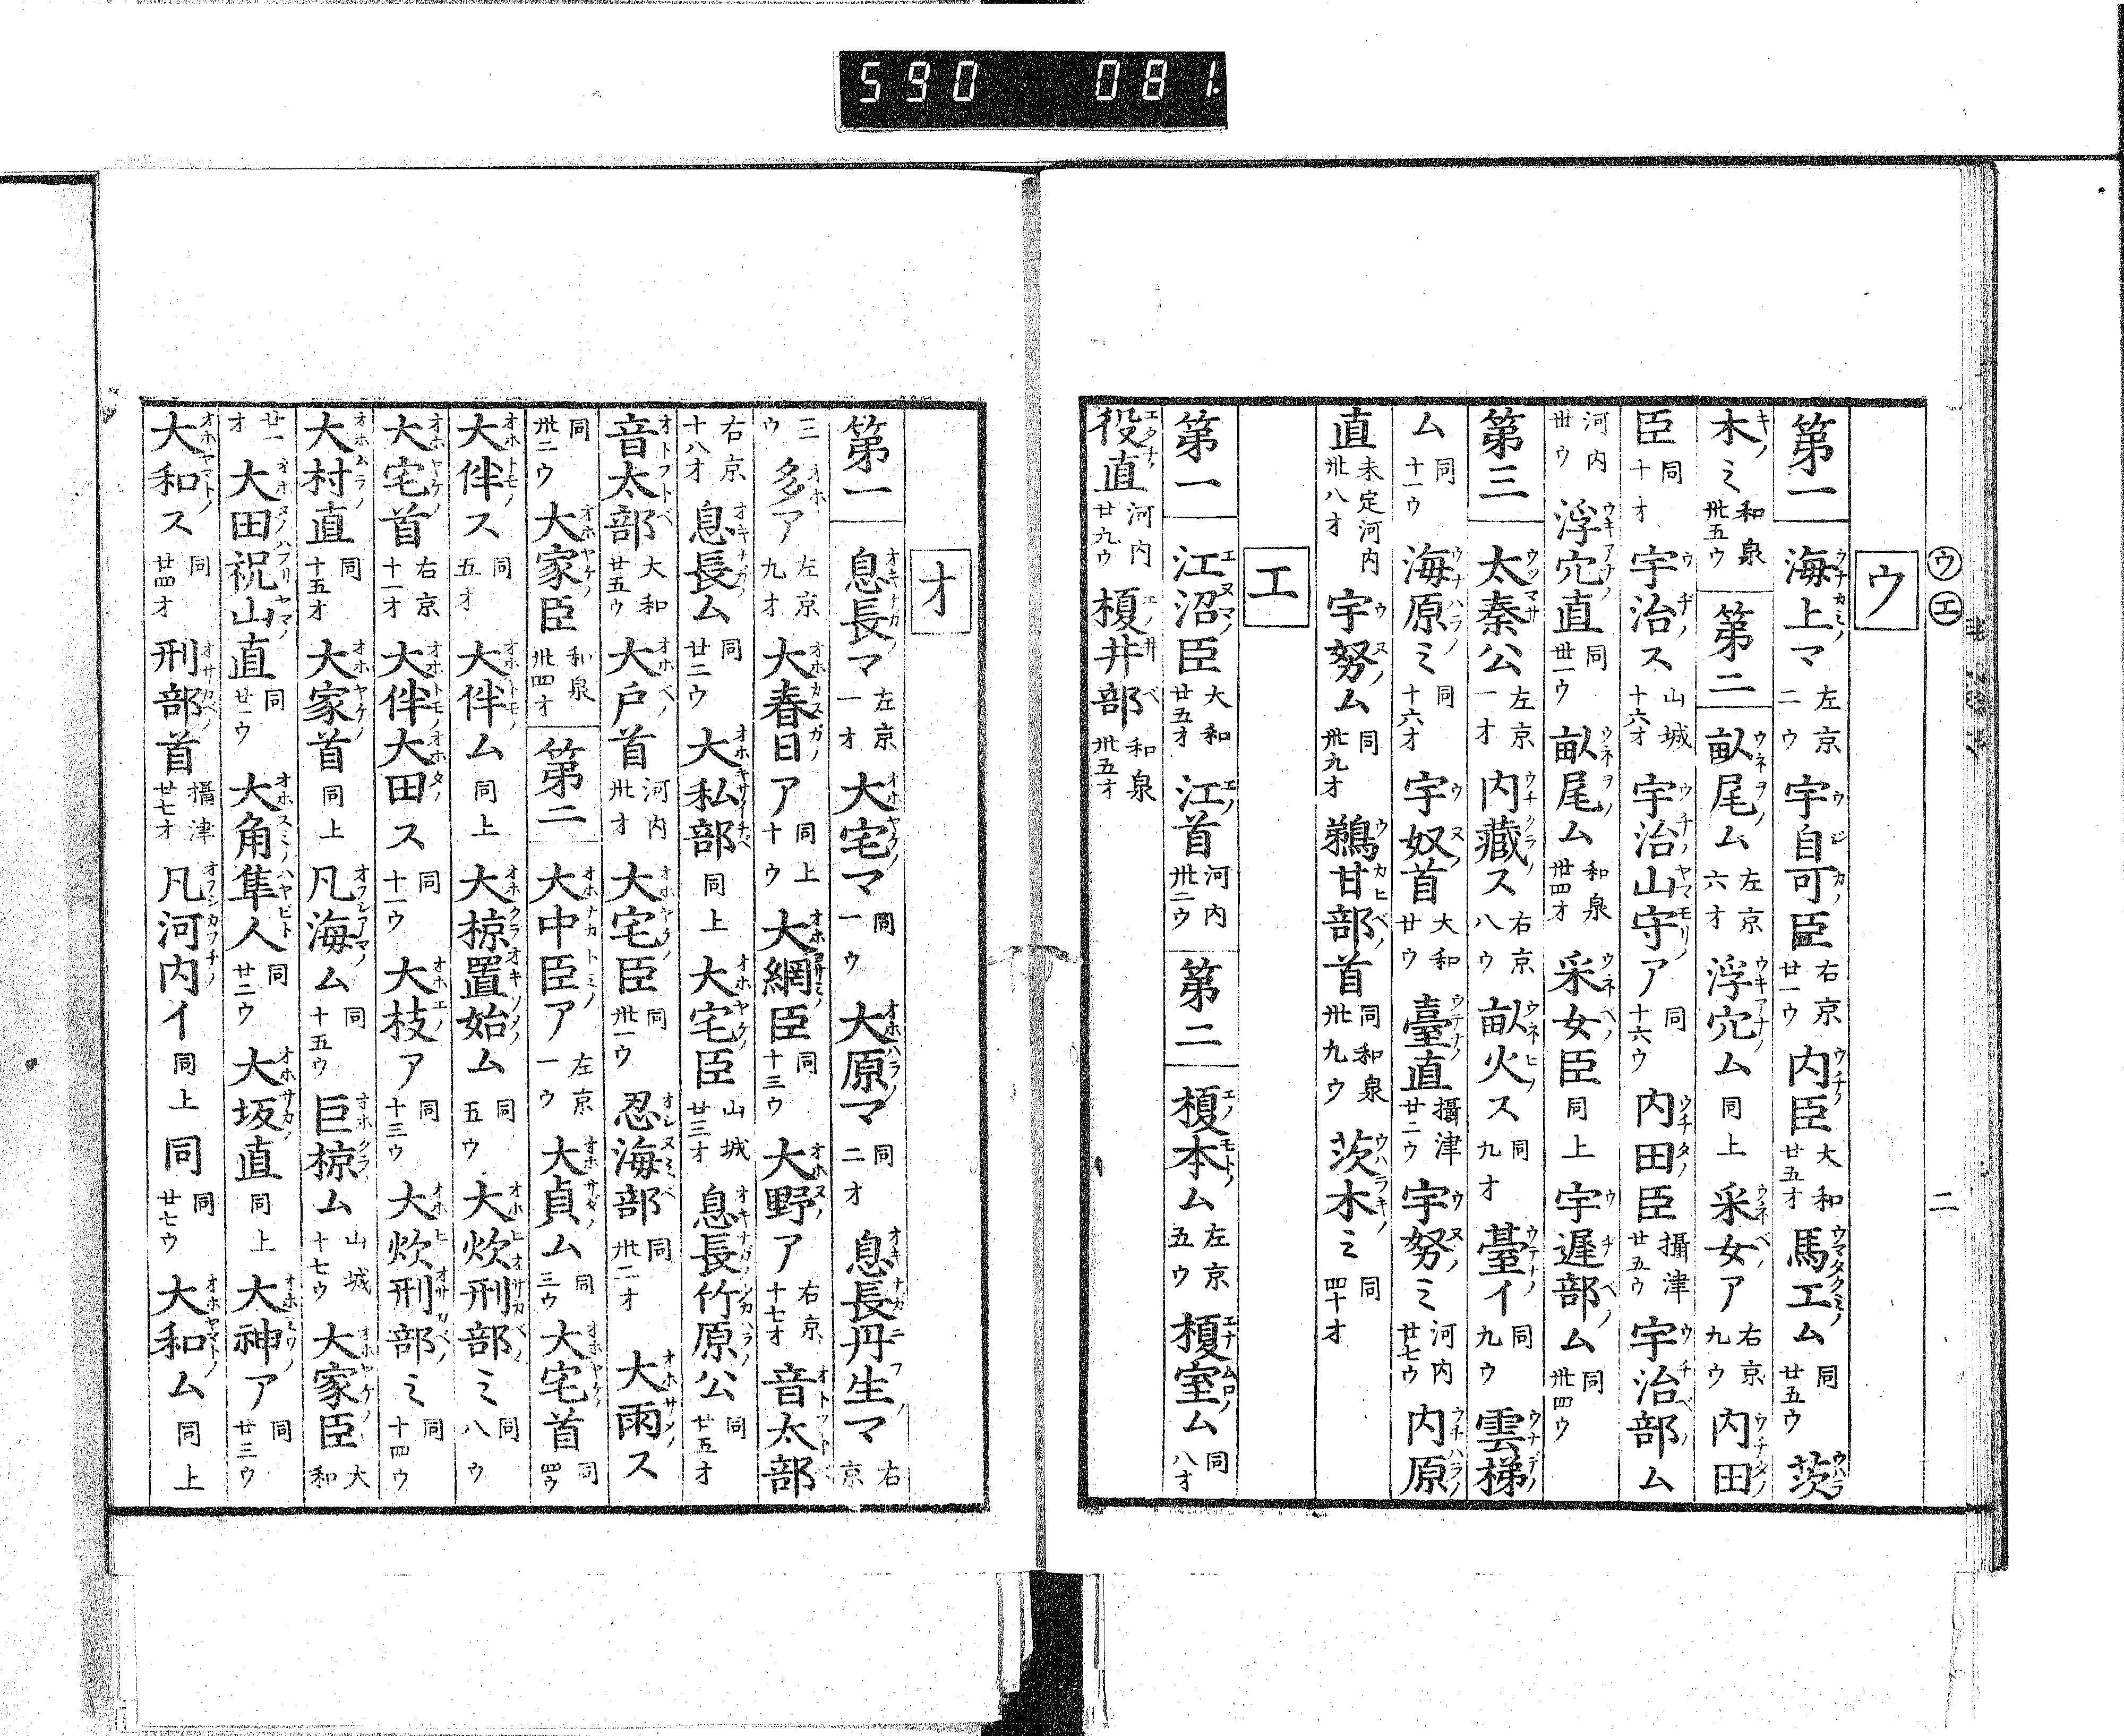 590 081.
ウ エ 二
ウ
第一 海上マ 左京二ウ 宇自可臣 右京廿一ウ 内臣 大和廿五オ 馬工ム 同廿五ウ 茨
木ミ 和泉卅五ウ 第二 畝尾ム 左京六オ 浮穴ム 同上 采女ア 右京九ウ 内田
臣 同十オ 宇治ス 山城十六オ 宇治山守ア 同十六ウ 内田臣 攝津廿五ウ 宇治部ム
河内卅ウ 浮穴直 同卅一ウ 畝尾ム 和泉卅四オ 采女臣 同上 宇遲部ム 同卅四ウ
第三 太秦公 左京一オ 内藏ス 右京八ウ 畝火ス 同九オ 臺イ 同九ウ 雲梯
ム 同十一ウ 海原ミ 同十六オ 宇奴首 大和廿ウ 臺直 攝津廿二ウ 宇努ミ 河内廿七ウ 内原
直 未定河内卅八オ 宇努ム 同卅九オ 鵜甘部首 同和泉卅九ウ 茨木ミ 同四十オ
エ
第一 江沼臣 大和廿五オ 江首 河内卅二ウ 第二 榎本ム 左京五ウ 榎室ム 同八オ
役直 河内廿九ウ 榎井部 和泉卅五オ
オ
第一 息長マ 左京一オ 大宅マ 同一ウ 大原マ 同二オ 息長丹生マ 右京
三ウ 多ア 左京九オ 大春日ア 同上十ウ 大網臣 同十三ウ 大野ア 右京十七オ 音太部
右京十八オ 息長ム 同廿二ウ 大私部 同上 大宅臣 山城廿三オ 息長竹原公 同廿五オ
音太部 大和廿五ウ 大戸首 河内卅オ 大宅臣 同卅一ウ 忍海部 同卅二オ 大雨ス
同卅二ウ 大家臣 和泉卅四オ 第二 大中臣ア 左京一ウ 大貞ム 同三ウ 大宅首 同四ウ
大伴ス 同五オ 大伴ム 同上 大椋置始ム 同五ウ 大炊刑部ミ 同八ウ
大宅首 右京十一オ 大伴大田ス 同十一ウ 大枝ア 同十三ウ 大炊刑部ミ 同十四ウ
大村直 同十五オ 大家首 同上 凡海ム 同十五ウ 巨椋ム 山城十七ウ 大家臣 大和
廿一オ 大田祝山直 同廿一ウ 大角隼人 同廿二ウ 大坂直 同上 大神ア 同廿三ウ
大和ス 同廿四オ 刑部首 攝津廿七オ 凡河内イ 同上 同 同廿七ウ 大和ム 同上